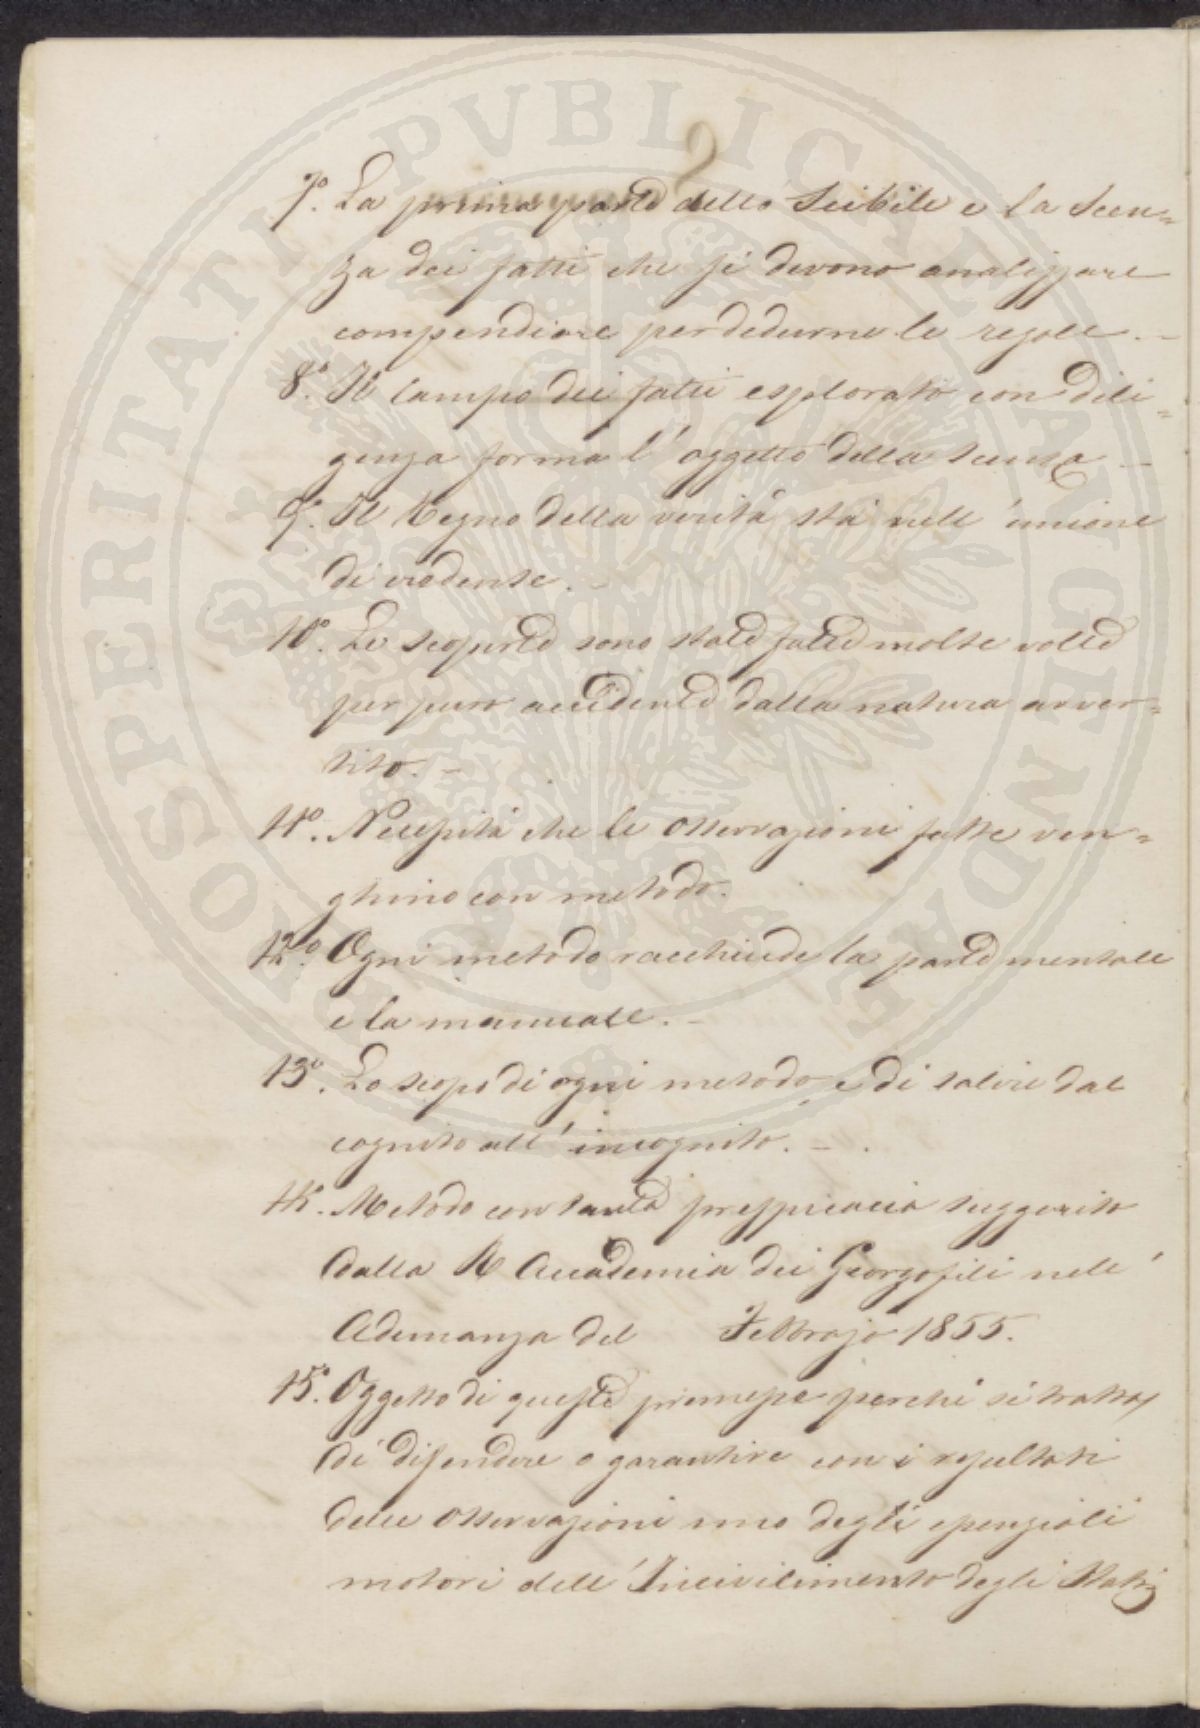 PROSPERITATI PVBLICAE AVGENDAE
7.º La prima parte dello Scibile e la Scen=
za dei fatti che si devono analizzare
compendiare per dedurne le regole. –
8.º Il campo dei fatti esplorato con dili=
genza forma l'oggetto della scenza –
9.º Il Regno della verità stà nell'unione
di vedente. –
10.º Le scoperte sono state fatte molte volte
per puro accidente dalla natura avver=
tito. –
11.º Necessità che le osservazioni fatte ven=
ghino con metodo.
12.º Ogni metodo racchiude la parte mentale
e la manuale. –
13.º Lo scopo di ogni metodo e di salire dal
cognito all'incognito. – .
14.º Metodo con tanta prespicacia suggerito
dalla R Accademia dei Georgofili nell'
Adunanza del Febbrajo 1855.
15.º Oggetto di queste premesse perchè si tratta
di difendere e garantire con i resultati
delle osservazioni uno degli essenziali
motori dell'Incivilimento degli Stati